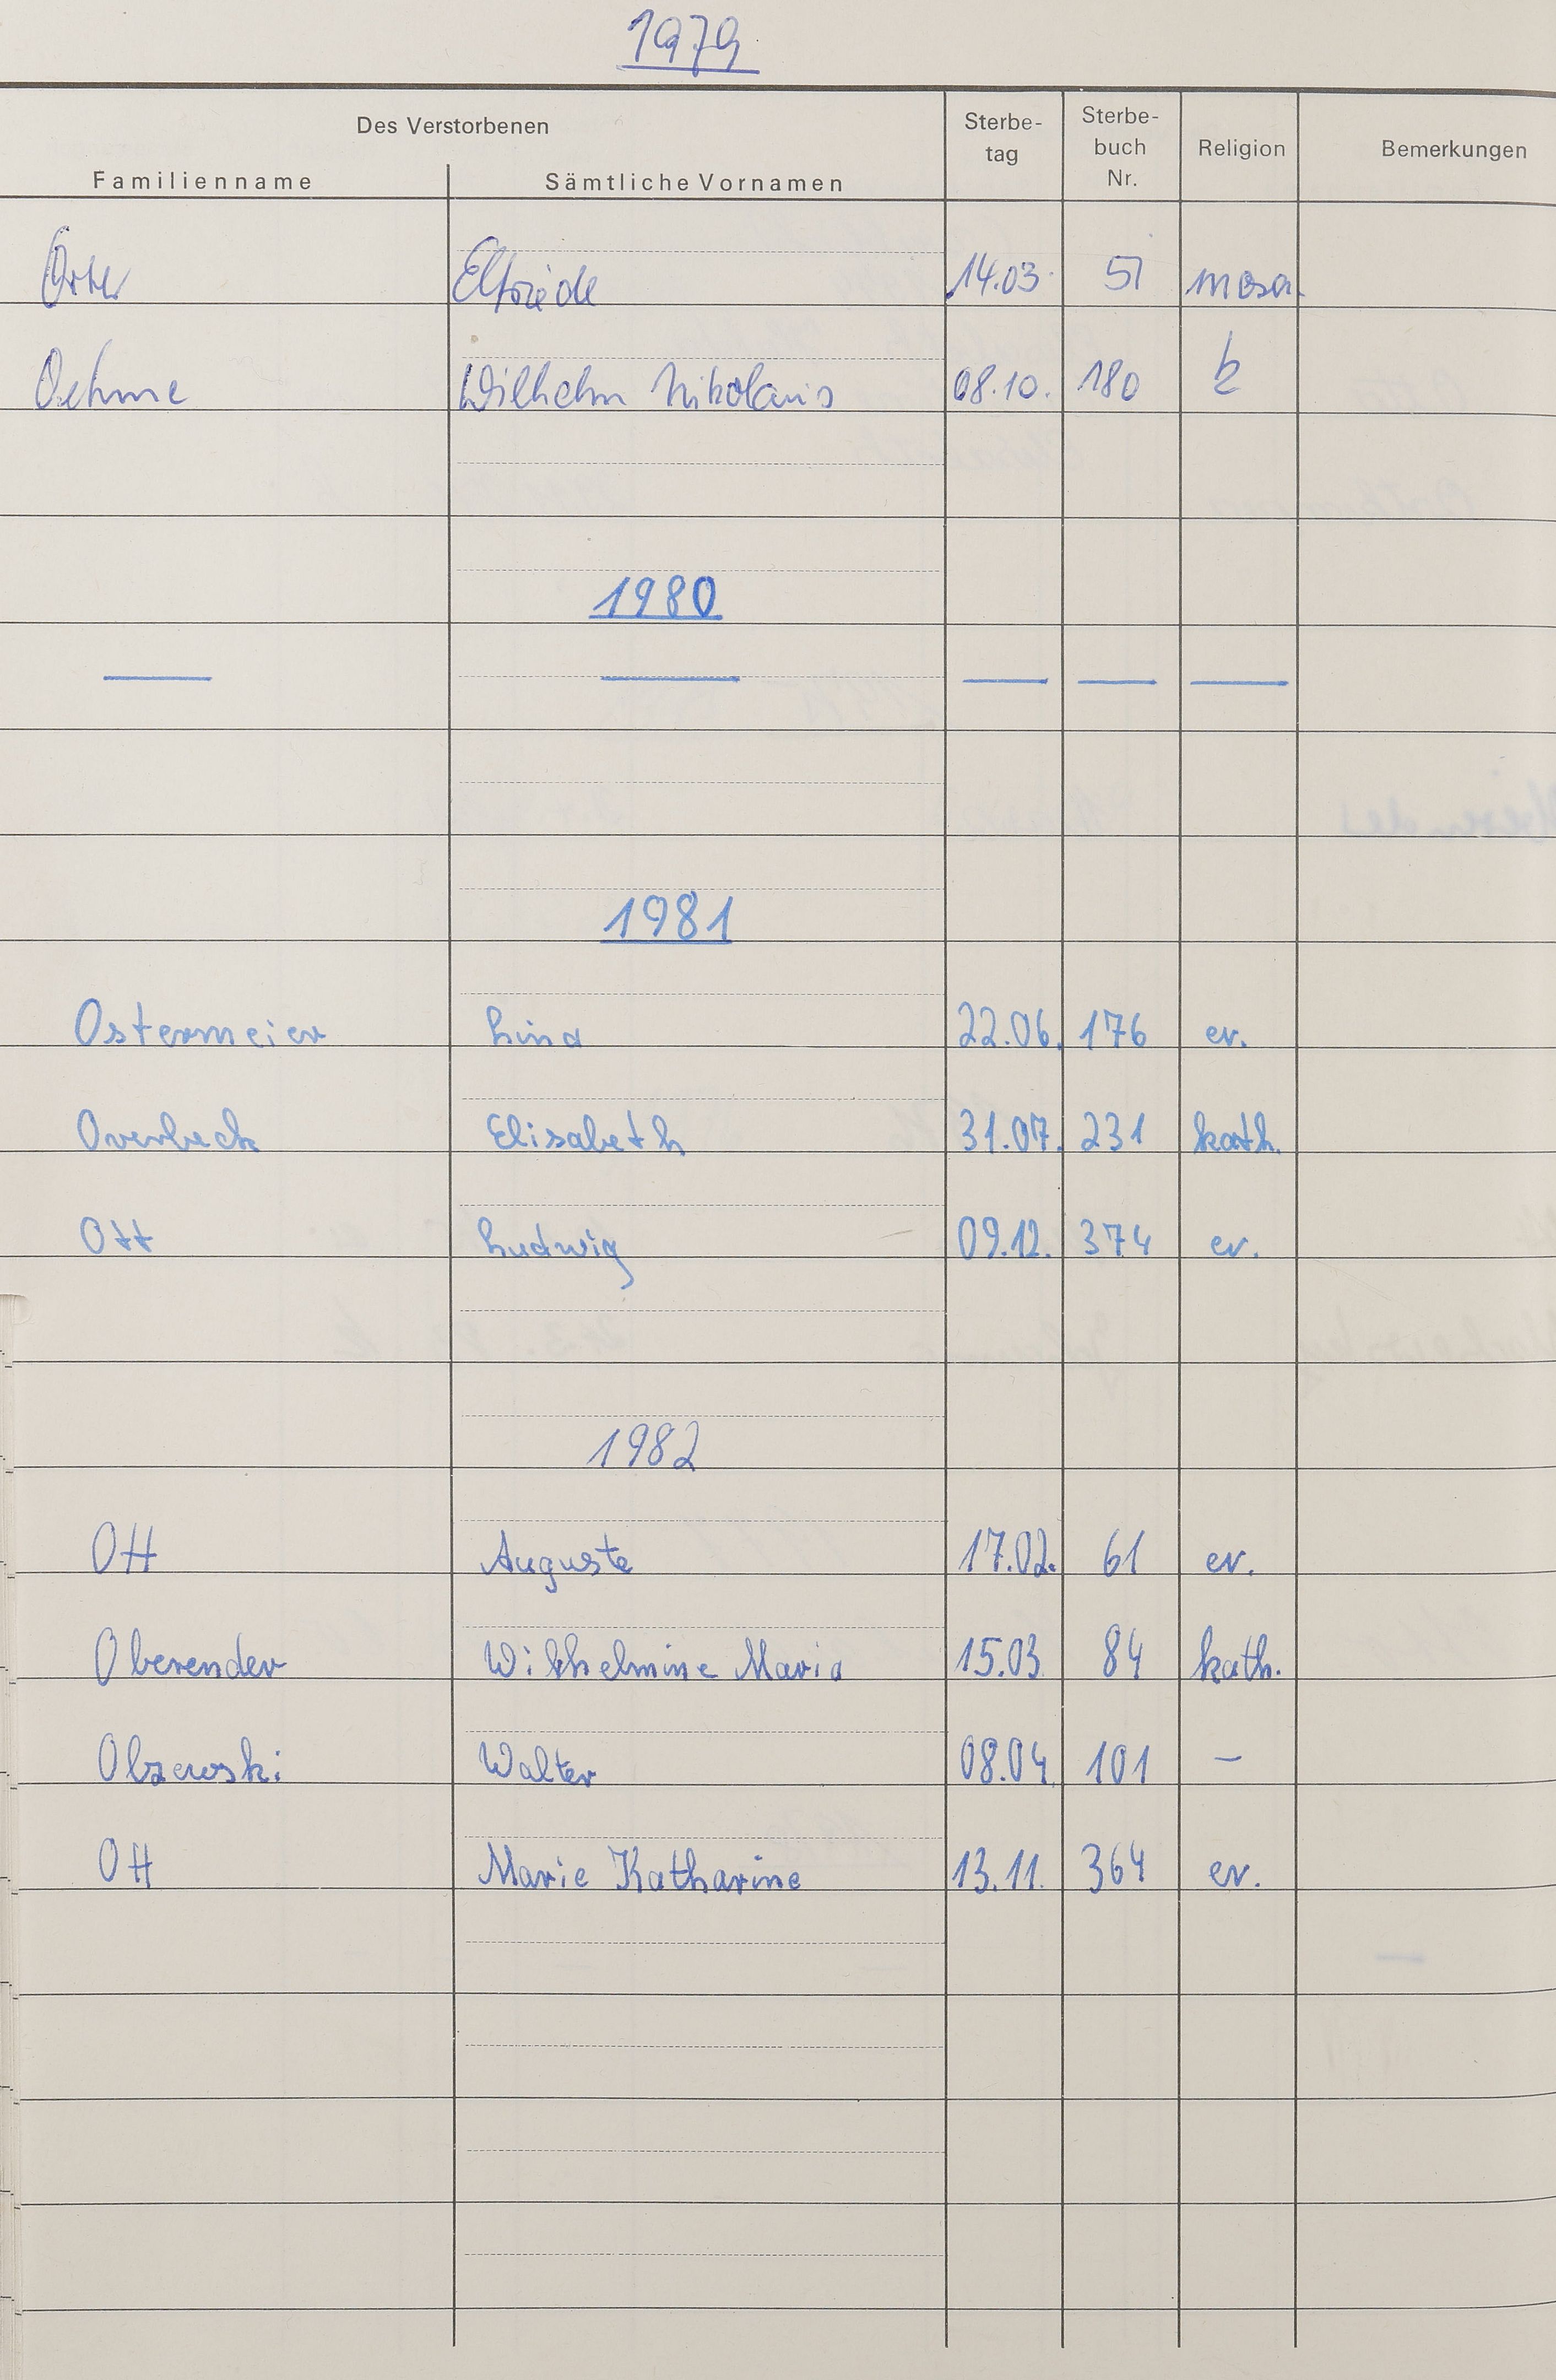 1979
Des Verstorbenen
Familienname Sämtliche Vornamen Sterbe-tag Sterbe-buch Nr. Religion Bemerkungen
Elfriede 14.03. 51 mosa.
Oehme Wilhelm Nikolaus 08.10. 180 k
1980
— — — — —
1981
Ostermeier Lina 22.06. 176 ev.
Overbeck Elisabeth 31.07. 231 kath.
Ott Ludwig 09.12. 374 ev.
1982
Ott Auguste 17.02. 61 ev.
Oberender Wilhelmine Maria 15.03. 84 kath.
Olszewski Walter 08.04. 101 –
Ott Marie Katharine 13.11. 364 ev.